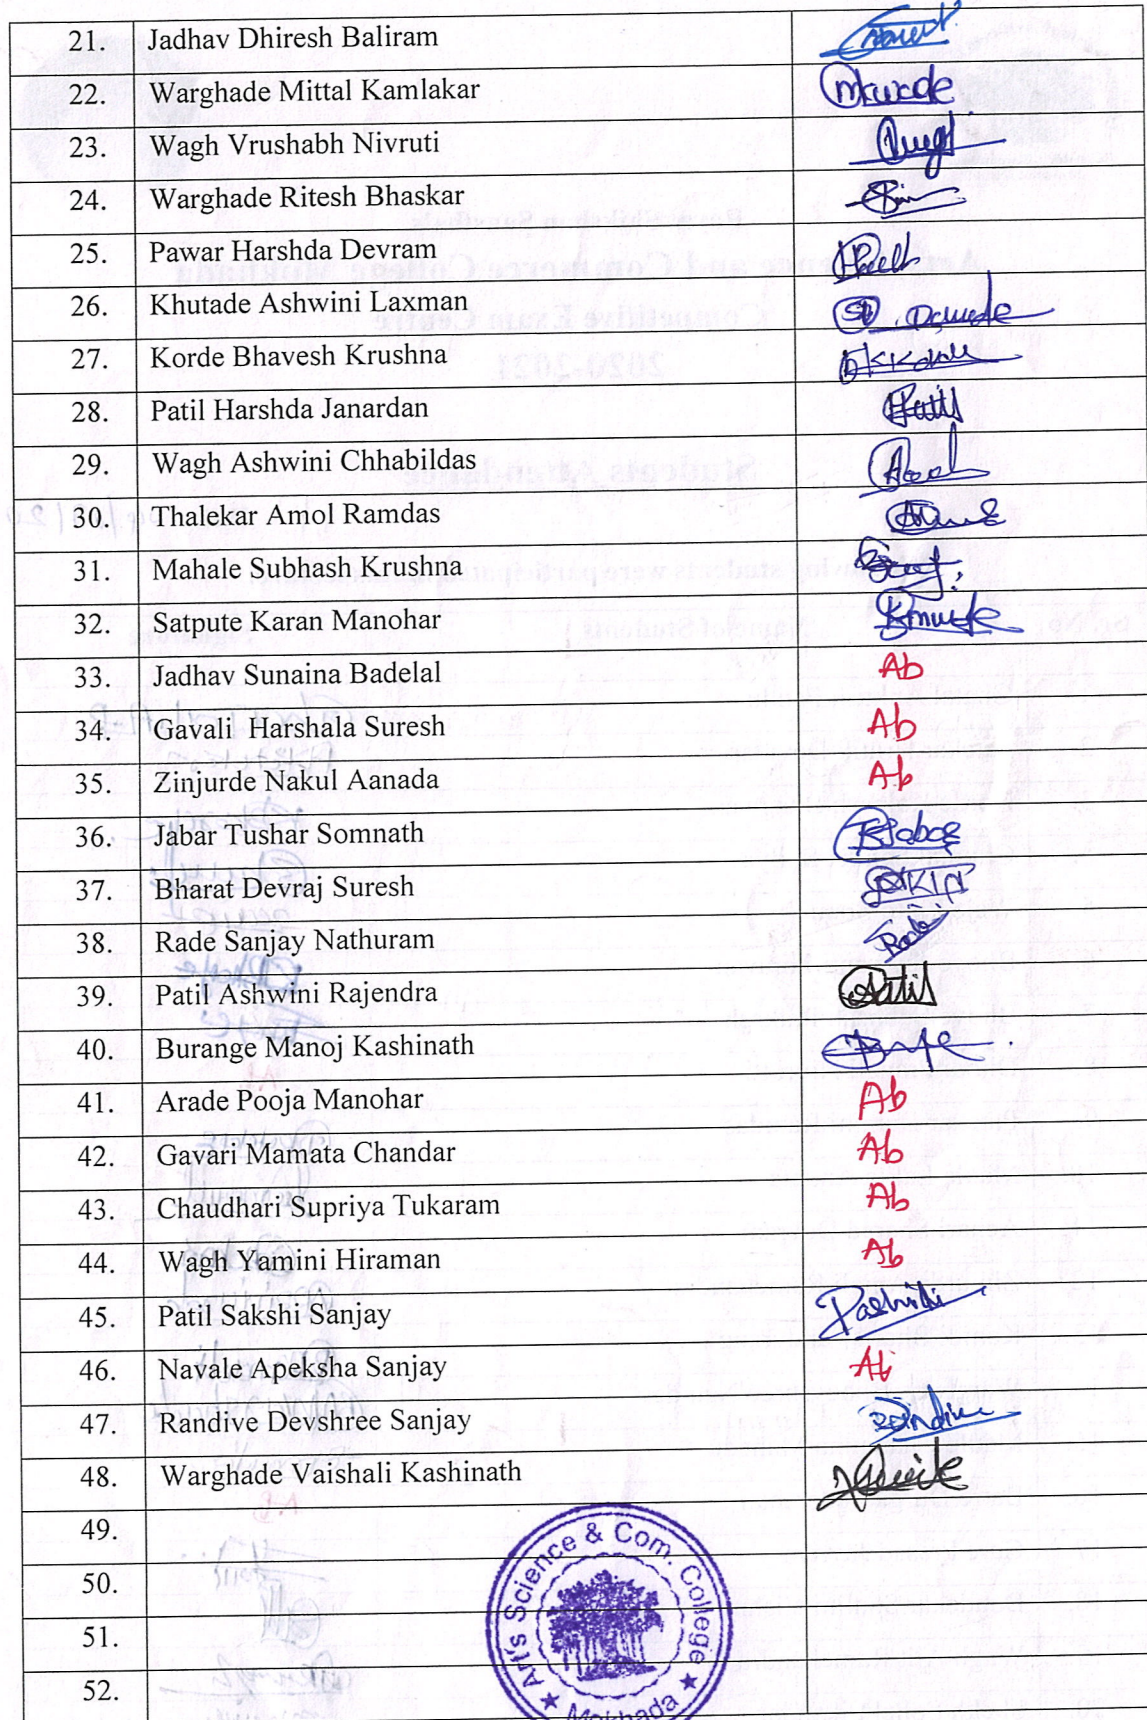 21. Jadhav Dhiresh Baliram
22. Warghade Mittal Kamlakar
23. Wagh Vrushabh Nivruti
24. Warghade Ritesh Bhaskar
25. Pawar Harshda Devram
26. Khutade Ashwini Laxman
27. Korde Bhavesh Krushna
28. Patil Harshda Janardan
29. Wagh Ashwini Chhabildas
30. Thalekar Amol Ramdas
31. Mahale Subhash Krushna
32. Satpute Karan Manohar
33. Jadhav Sunaina Badelal Ab
34. Gavali Harshala Suresh Ab
35. Zinjurde Nakul Aanada Ab
36. Jabar Tushar Somnath
37. Bharat Devraj Suresh
38. Rade Sanjay Nathuram
39. Patil Ashwini Rajendra Patil
40. Burange Manoj Kashinath
41. Arade Pooja Manohar Ab
42. Gavari Mamata Chandar Ab
43. Chaudhari Supriya Tukaram Ab
44. Wagh Yamini Hiraman Ab
45. Patil Sakshi Sanjay
46. Navale Apeksha Sanjay Ab
47. Randive Devshree Sanjay
48. Warghade Vaishali Kashinath
49.
50.
51.
52.
Art's Science & Com. College
Mokhada